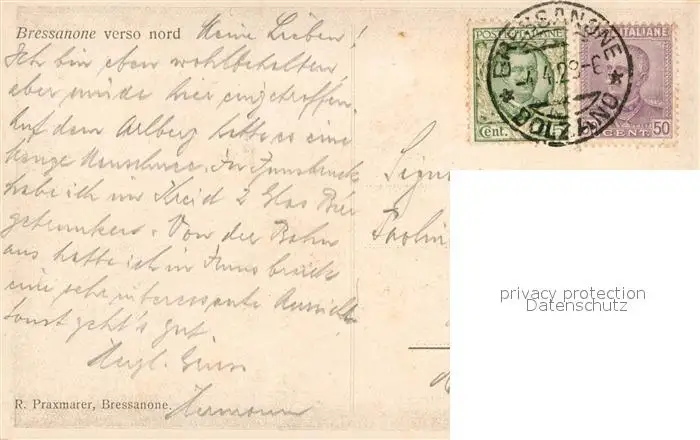 Bressanone verso nord
Meine Lieben!
Ich bin eben wohlbehalten,
aber müde hier eingetroffen.
Auf dem Arlberg hatte es eine
Menge Neuschnee. In Innsbruck
habe ich im Kreid 2 Glas Bier
getrunken. Von der Bahn
aus hatte ich in Innsbruck
eine sehr interessante Aussicht.
Sonst geht's gut.
Herzl. Gruss
Hermann
R. Praxmarer, Bressanone.
POSTE ITALIANE
Cent.
ITALIANE
50
CENT.
BRESSANONE
BOLZANO
Paolin
privacy protection
Datenschutz